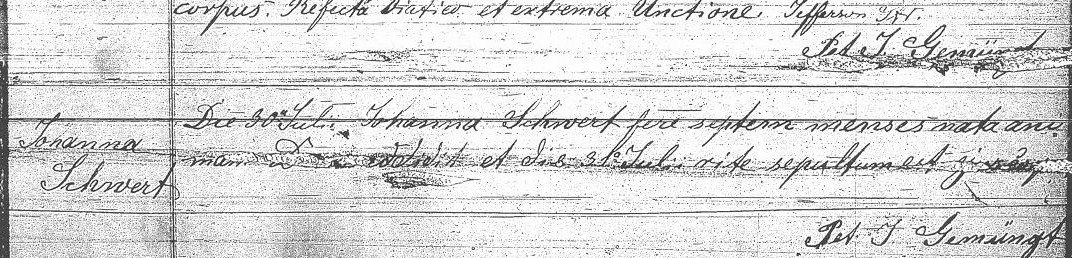 corpus. Refecta Viatico et extrema Unctione. Jefferson
Pet. J. Gemüngt
Johanna
Schwert
Die 30ª Julii Johanna Schwert fere septem menses nata ani
mam D edidit et die 31ª Julii rite sepultum est
Pet. J Gemüngt